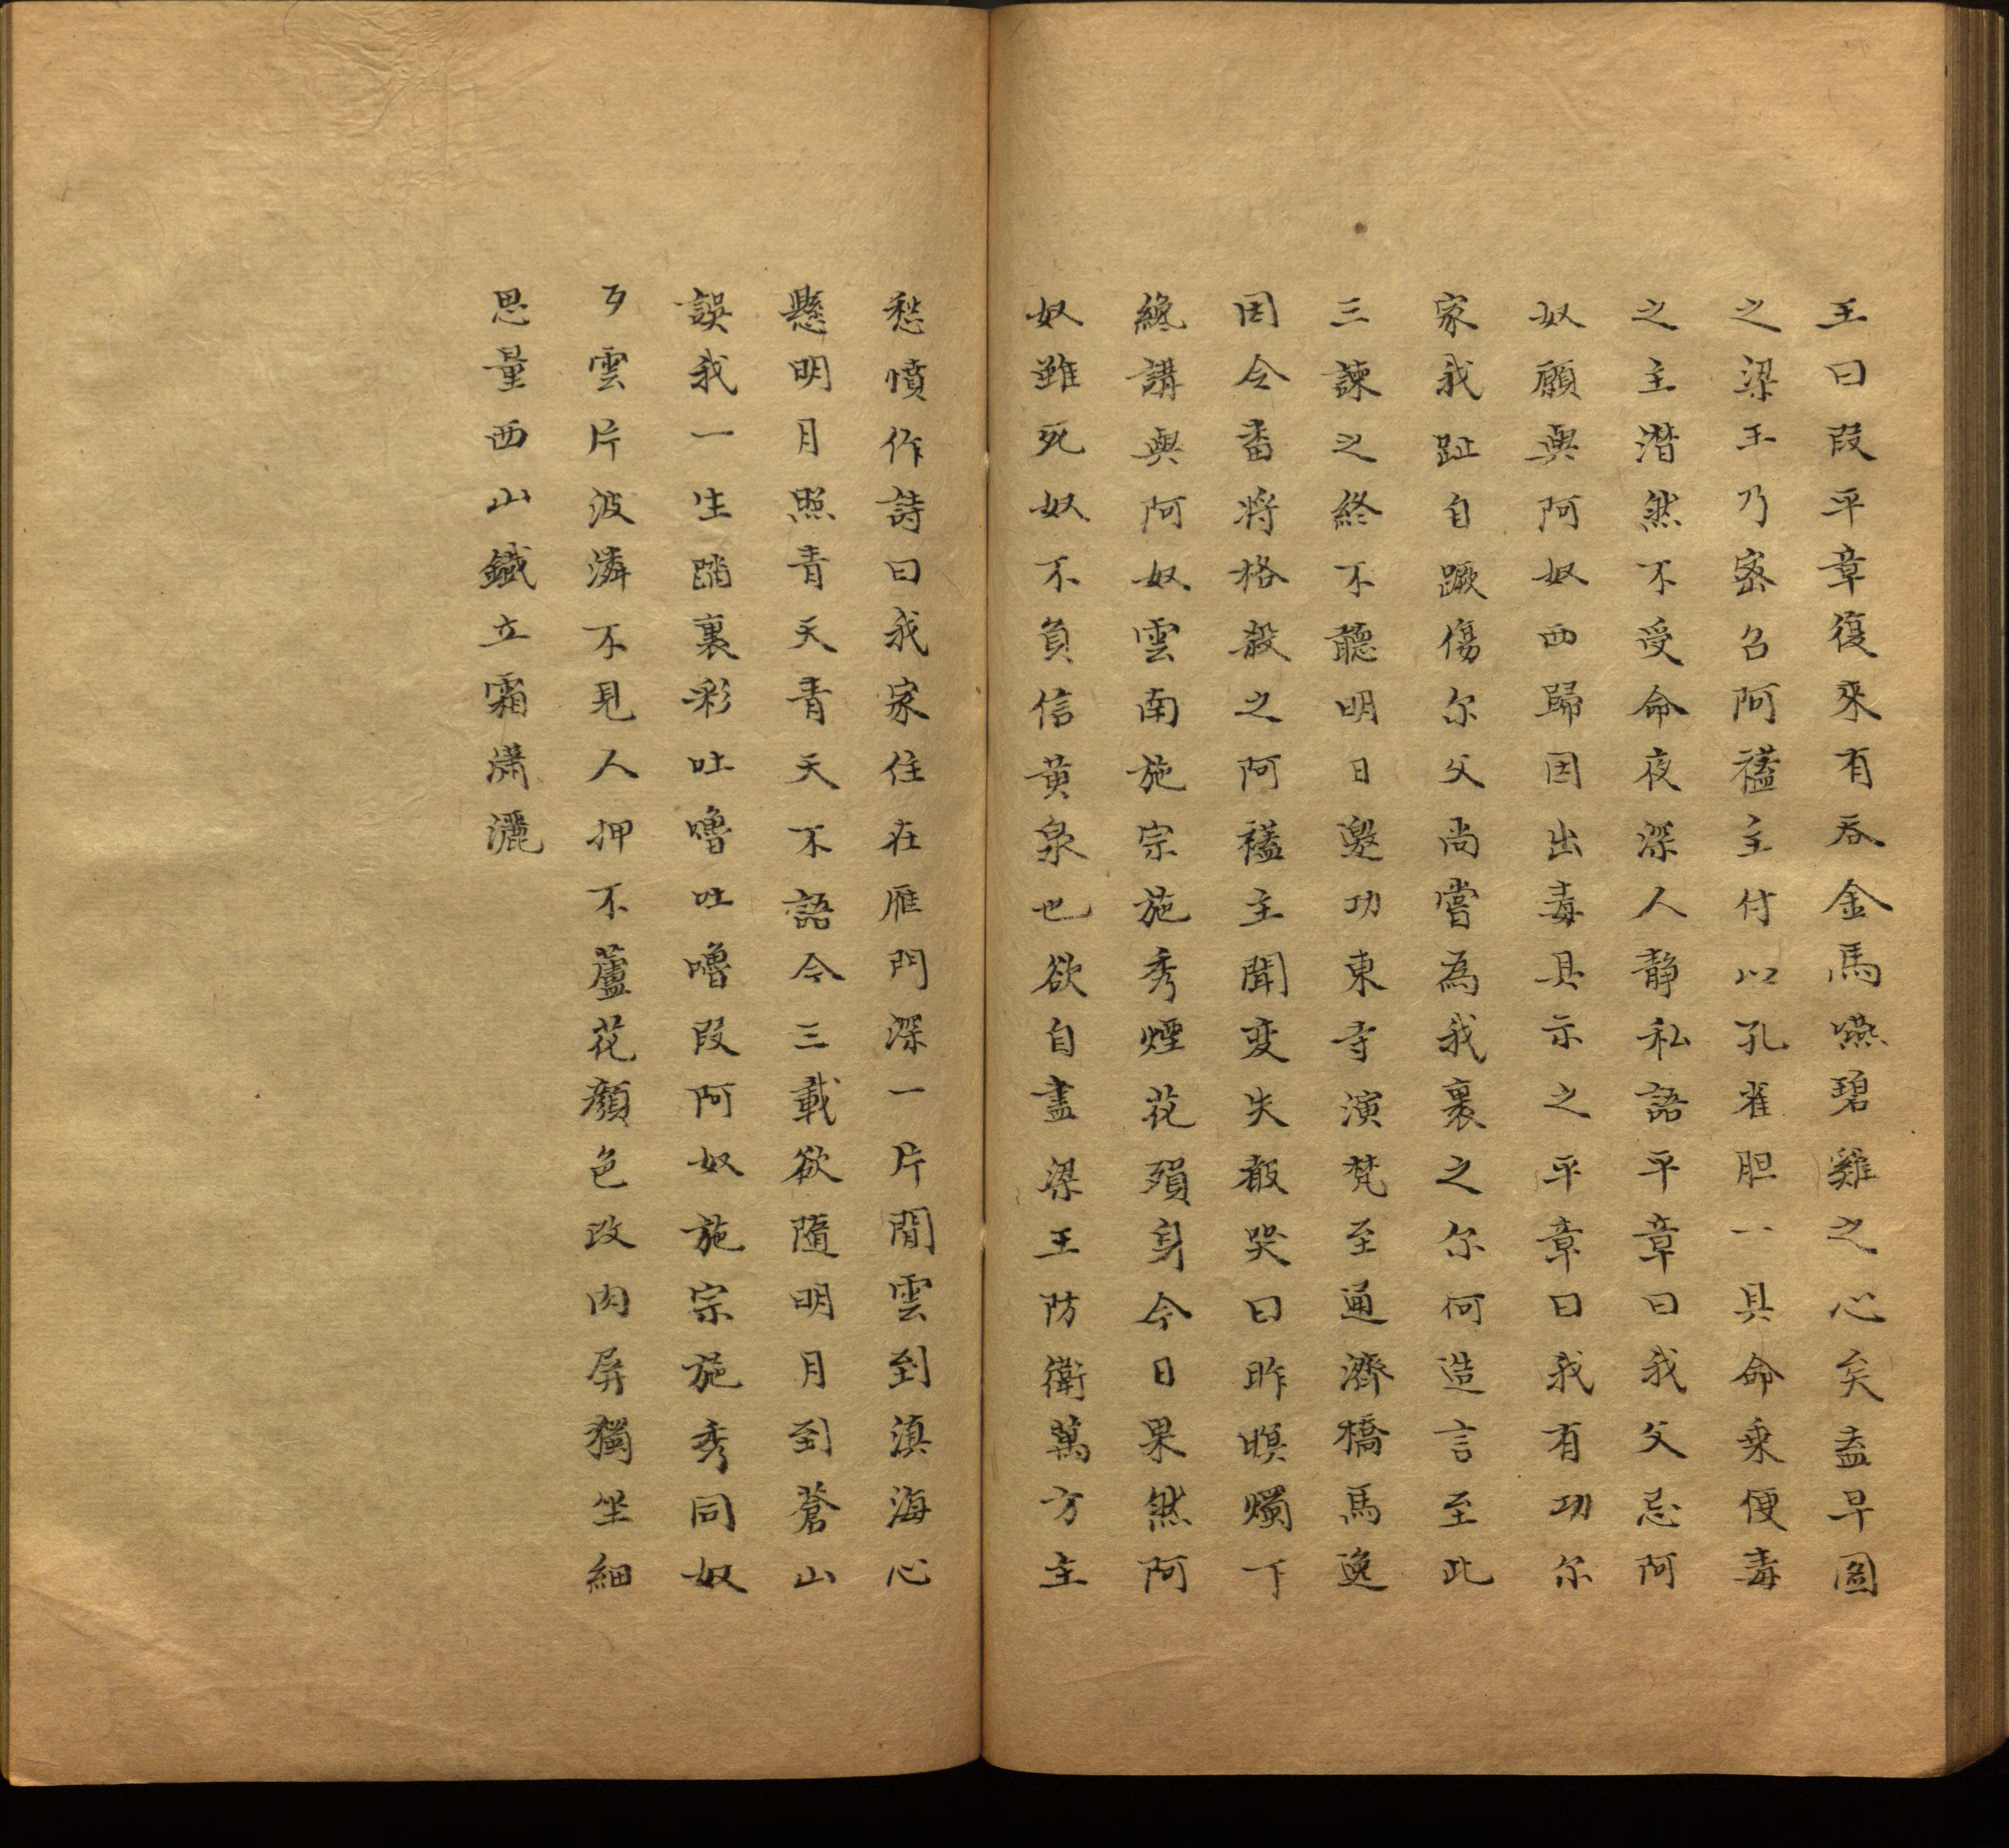 王曰段平章復來有吞金馬嚥碧雞之心矣盍早圖
之梁王乃密召阿䙔主付以孔雀胆一具命乘便毒
之主潛然不受命夜深人静私語平章曰我父忌阿
奴願與阿奴西歸因出毒具示之平章曰我有功尔
家我趾自蹶傷尔父尚嘗為我裹之尔何造言至此
三諫之終不聽明日邀功東寺演梵至通濟橋馬逸
因令畨將格殺之阿䙔主聞变失聲哭曰昨暝燭下
纔講與阿奴雲南施宗施秀煙花殞身今日果然阿
奴雖死奴不負信黄泉也欲自盡梁王防衛萬方主
愁憤作詩曰我家住在雁門深一片閒雲到滇海心
懸明月照青天青天不語今三載欲隨明月到蒼山
誤我一生踏裏彩吐嚕吐嚕段阿奴施宗施秀同奴
歹雲片波潾不見人押不蘆花顏色改肉屏獨坐細
思量西山鐵立霜瀟灑